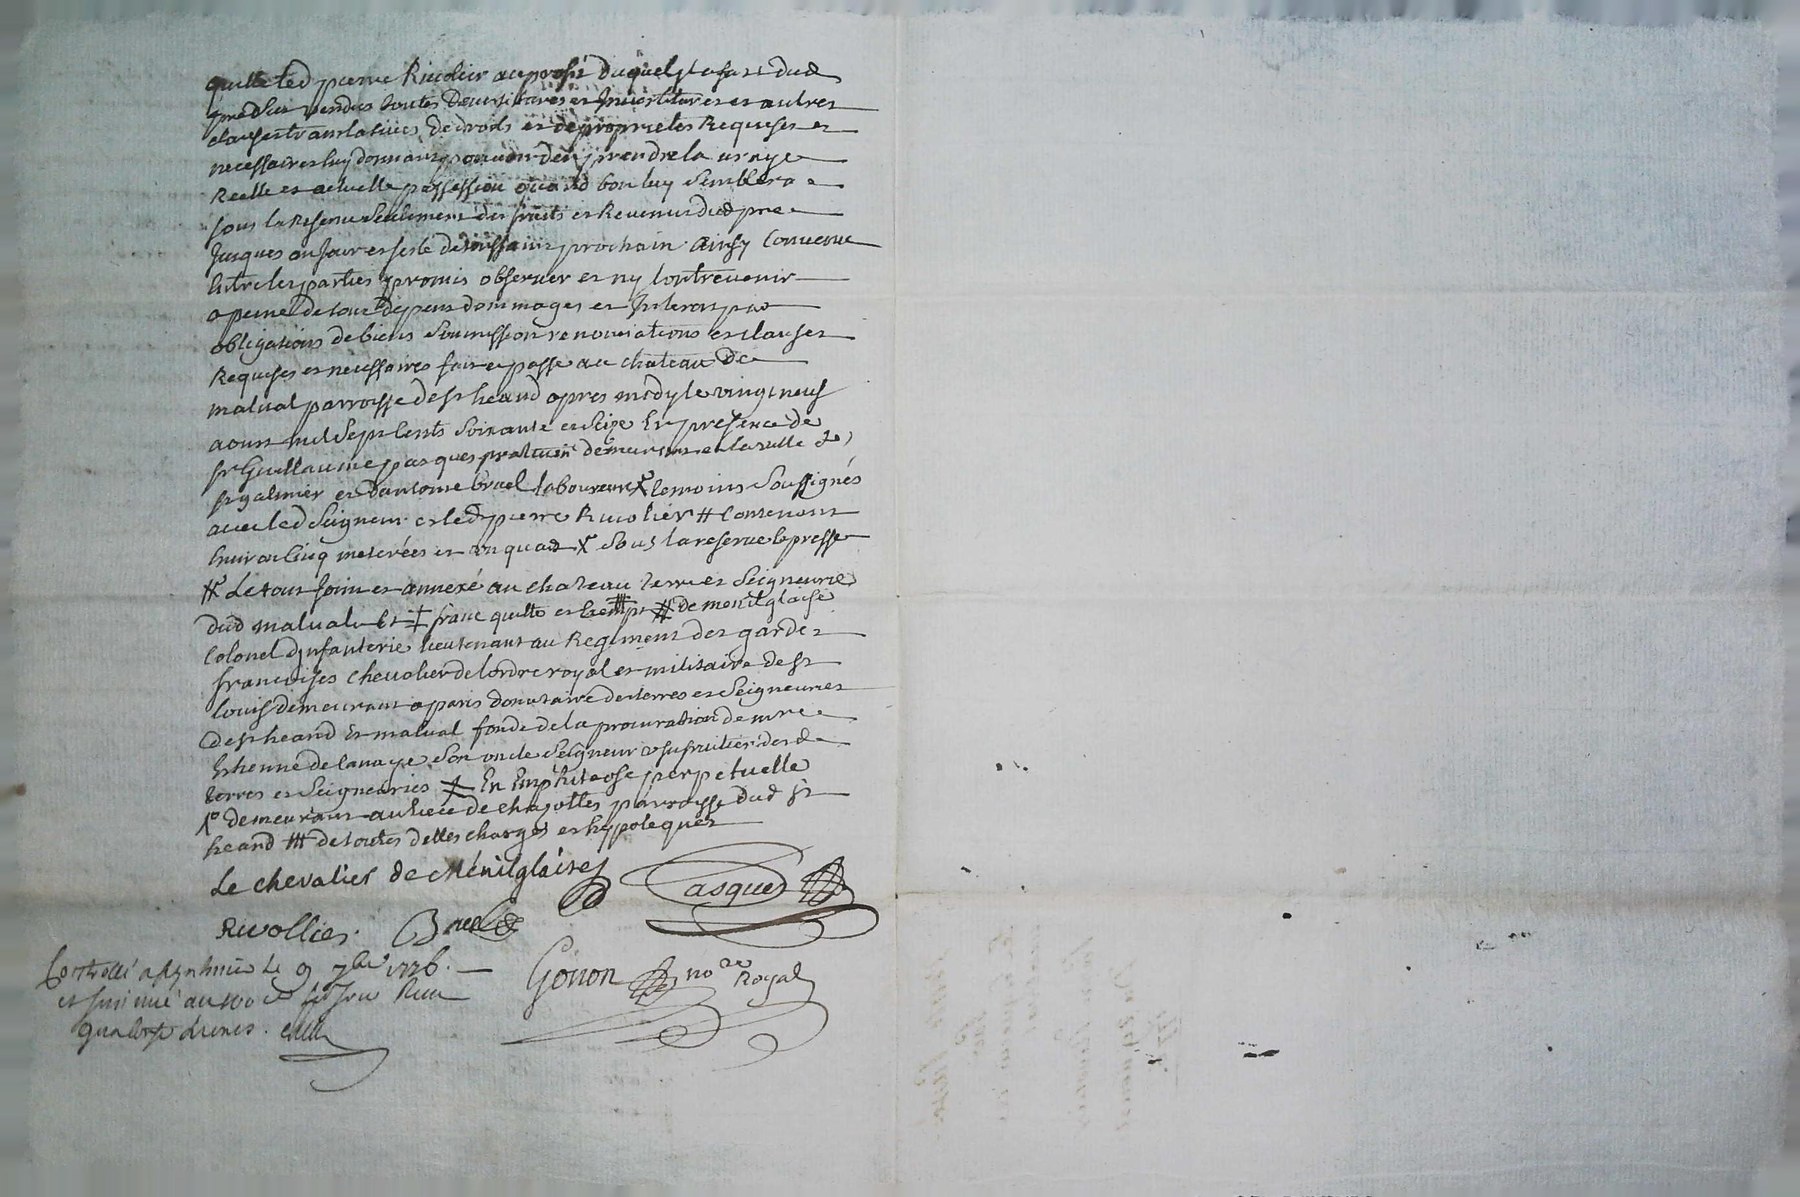 quitte led pierre Rivolier au profit duquel il a fait dud
pred leur vendus toutes devestitures et Investitures et autres
clauses translatives de droits et de proprietes Requises et
necessaires luy donnant pouvoir den prendre la vraye
Reelle et actuelle possession quand bon luy semblera
sous la Reserve seulement des fruits et Revenus dud pre
jusques au jour et feste de toussaint prochain ainsy Convenu
Entre les parties promis observer et ny Contrevenir
a peine de tous depens dommages et Interests par
obligations de biens soumission renonciations et clauses
Requises et necessaires fait et passé au chateau de
malval parroisse de st heand apres midy le vingt neuf
aoust mil sept Cents soixante et seize En presence de
sr Guillaume pasques praticien demeurant en la ville de
st galmier et dantoine bruel laboureur temoins soussignés
avec led seigneur et led pierre Rivolier # Contenant
Environ Cinq meterées et un quard X sous la reserve Expresse
X Le tout joint et annexé au chateau terre et seigneurie
dud malval et ‡ franc quitte et Exempt # de menilglaise
Colonel dinfanterie lieutenant au Regiment des gardes
francoises chevalier de lordre royal et militaire de st
louis demeurant a paris donataire des terres et seigneuries
de st heand et malval fondé de la procuration de mre
Ethienne de la noye son oncle seigneur usufruitier desd
terres et seigneuries ‡ En Emphiteose perpetuelle
demeurant au lieu de chazottes parroisse dud st
heand # de toutes dettes charges et hypoteques
Le chevalier de Ménilglaise Pasques
Rivollier Bruel
Controllé a St Galmier Le 9 7bre 1776.
Gonon nore Royal
et insinué au
quatorze livres.